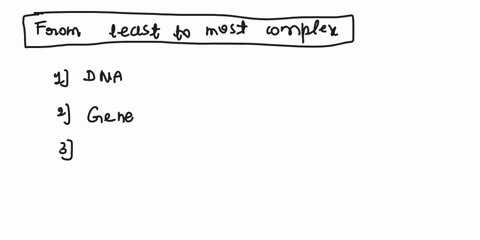 From least to most complex
1] DNA
2] Gene
3]